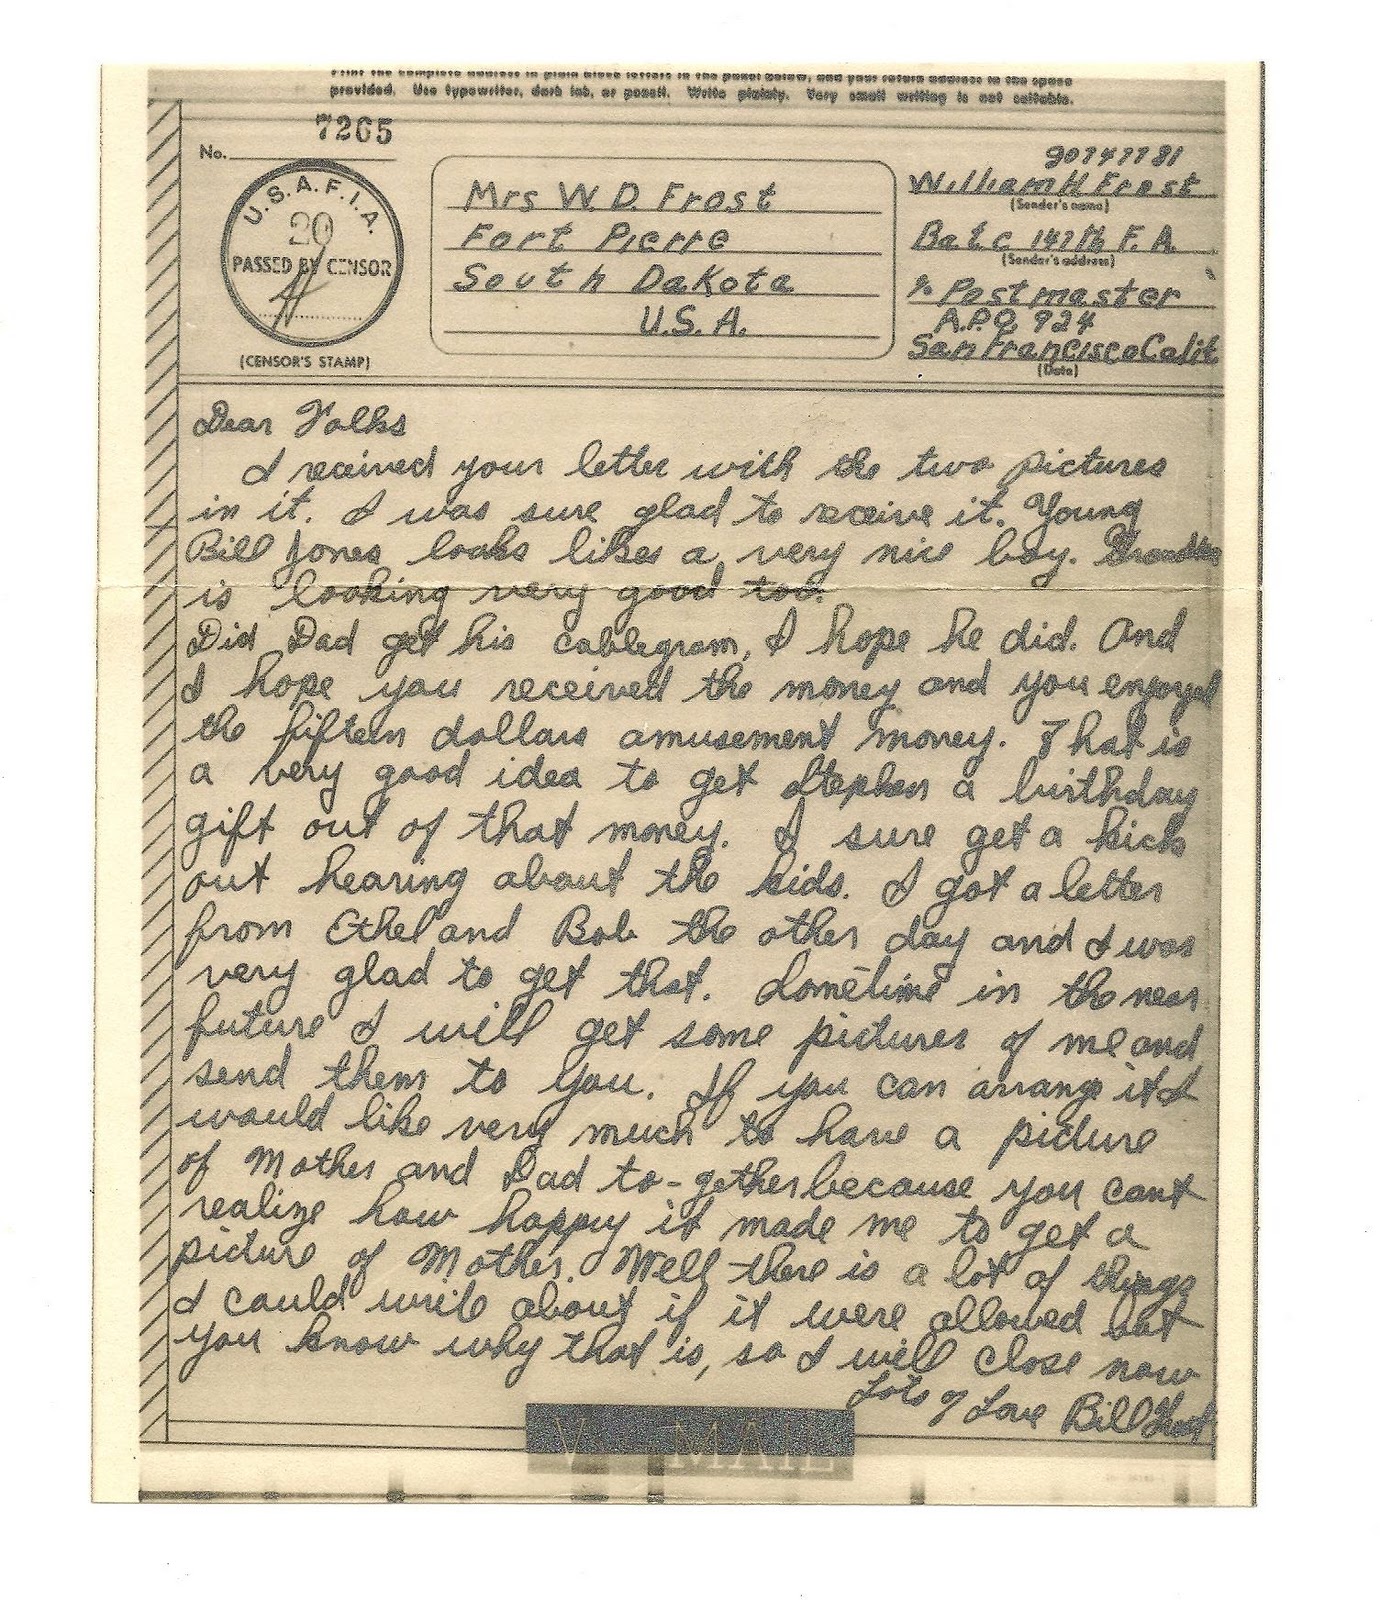 Print the complete address in plain block letters in the panel below, and your return address in the space
provided. Use typewriter, dark ink, or pencil. Write plainly. Very small writing is not suitable.
No. 7265
U.S.A.F.I.A.
20
PASSED BY CENSOR
(CENSOR'S STAMP)
Mrs W. D. Frost
Fort Pierre
South Dakota
U.S.A.
90747781
William H Frost
(Sender's name)
Bat C 147th F. A.
(Sender's address)
% Postmaster
A.P.O. 924
San Francisco Calif
(Date)
Dear Folks
I received your letter with the two pictures
in it. I was sure glad to receive it. Young
Bill Jones looks likes a very nice boy.
is looking very good too.
Did Dad get his cablegram, I hope he did. And
I hope you received the money and you enjoyed
the fifteen dollars amusement money. That is
a very good idea to get Stephen a birthday
gift out of that money. I sure get a kick
out hearing about the kids. I got a letter
from Ethel and Bob the other day and I was
very glad to get that. Sometime in the near
future I will get some pictures of me and
send them to you. If you can arrange it I
would like very much to have a picture
of Mother and Dad to-gether because you cant
realize how happy it made me to get a
picture of Mother. Well there is a lot of things
I could write about if it were allowed but
you know why that is, so I will close now
Lots of Love Bill Frost
V-MAIL